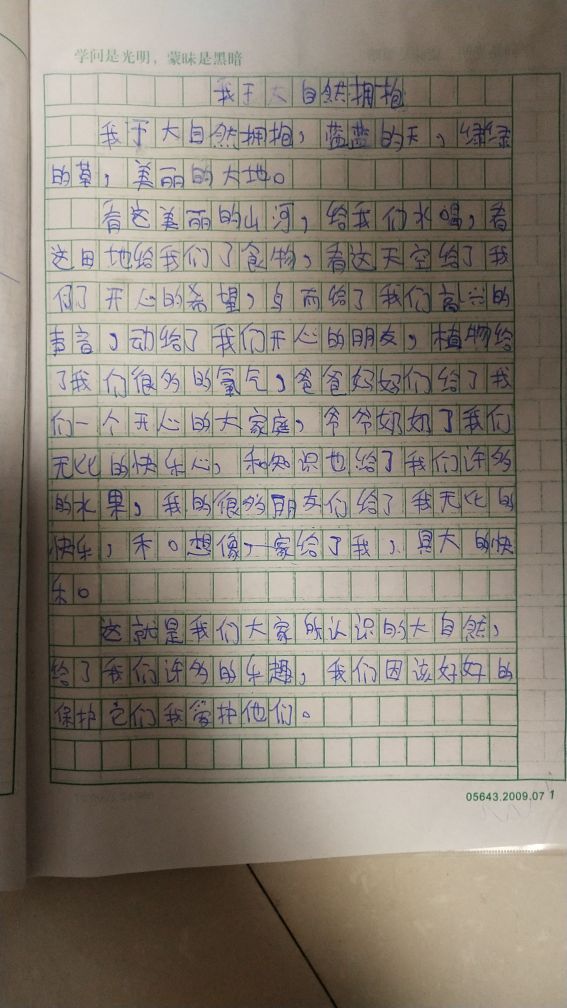 学问是光明，蒙昧是黑暗
我于大自然拥抱
我于大自然拥抱，蓝蓝的天，绿绿
的草，美丽的大地。
看这美丽的山河，给我们水喝，看
这田地给我们了食物，看这天空给了我
们了开心的希望，鸟而给了我们高兴的
声音，动给了我们开心的朋友，植物给
了我们很多的氧气，爸爸妈妈们给了我
们一个开心的大家庭，爷爷奶奶了我们
无比的快乐心，和知识也给了我们许多
的水果，我的很多朋友们给了我无比的
快乐，禾。想像，家给了我，具大的快
乐。
这就是我们大家所认识的大自然，
给了我们许多的乐趣，我们因该好好的
保护它们我爱护他们。
05643.2009.07 1